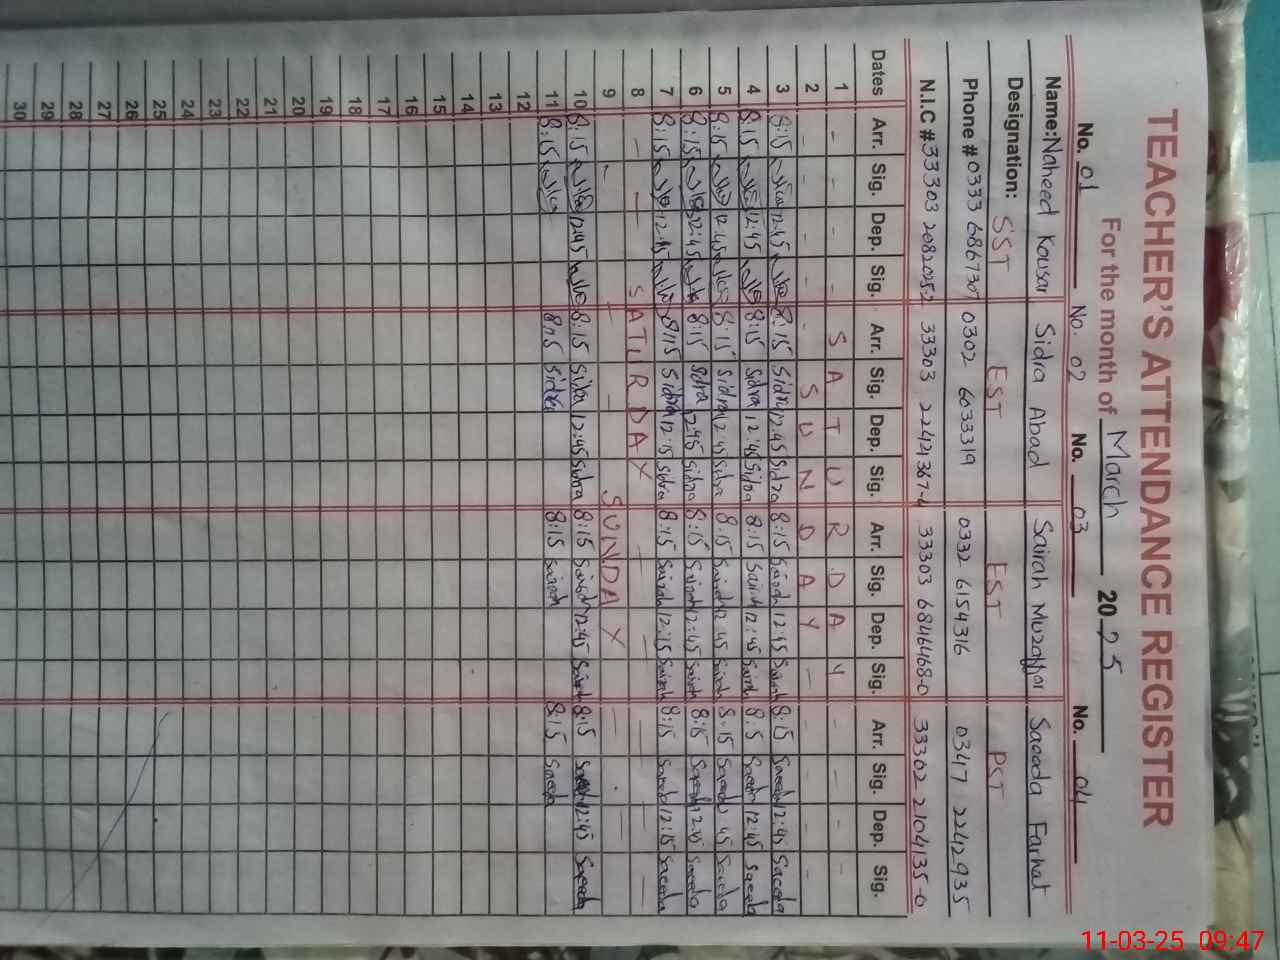 TEACHER'S ATTENDANCE REGISTER
For the month of March 2025
No. 01 No. 02 No. 03 No. 04
Name: Naheed Kousar Sidra Abad Sairah Muzaffar Saeeda Farhat
Designation: SST EST EST PST
Phone # 0333 6867307 0302 6033319 0332 6154316 0347 2242935
N.I.C # 33303 2082025-2 33303 22421367-4 33303 6846468-0 33302 2104135-0
Dates Arr. Sig. Dep. Sig. Arr. Sig. Dep. Sig. Arr. Sig. Dep. Sig. Arr. Sig. Dep. Sig.
1 - - - - SATURDAY - - - -
2 - - - - - SUNDAY - - - - -
3 8:15 12:45 8:15 Sidra 12:45 Sidra 8:15 Sairah 12:45 Sairah 8:15 Saeeda 12:45 Saeeda
4 8:15 12:45 8:15 Sidra 12:45 Sidra 8:15 Sairah 12:45 Sairah 8:15 Saeeda 12:45 Saeeda
5 8:15 12:45 8:15 Sidra 12:45 Sidra 8:15 Sairah 12:45 Sairah 8:15 Saeeda 12:45 Saeeda
6 8:15 12:45 8:15 Sidra 12:45 Sidra 8:15 Sairah 12:45 Sairah 8:15 Saeeda 12:45 Saeeda
7 8:15 12:15 8:15 Sidra 12:15 Sidra 8:15 Sairah 12:15 Sairah 8:15 Saeeda 12:15 Saeeda
8 SATURDAY
9 SUNDAY
10 8:15 12:45 8:15 Sidra 12:45 Sidra 8:15 Sairah 12:45 Sairah 8:15 Saeeda 12:45 Saeeda
11 8:15 8:15 Sidra 8:15 Sairah 8:15 Saeeda
12
13
14
15
16
17
18
19
20
21
22
23
24
25
26
27
28
29
30
11-03-25 09:47